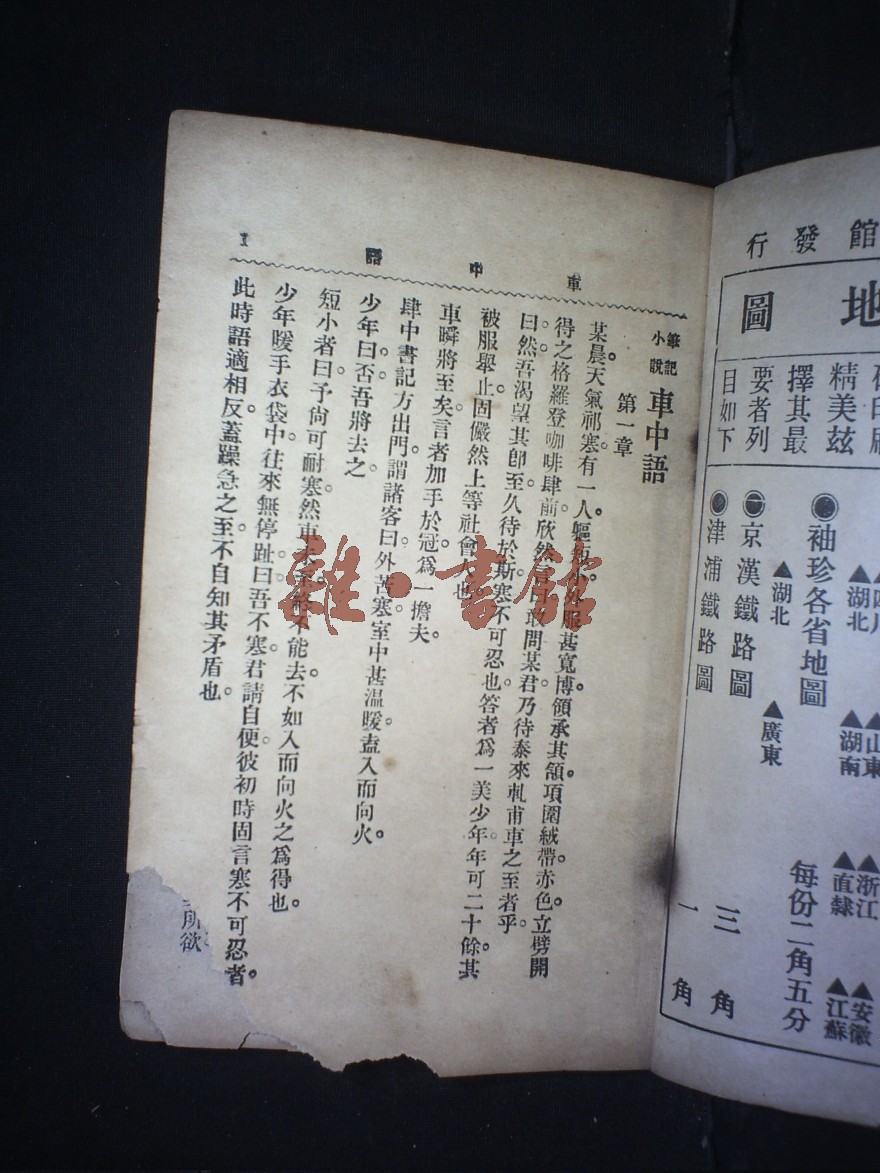 館發行
地
圖
精美茲
擇其最
要者列
目如下
▲四川
▲湖北
▲山東
▲湖南
▲浙江
▲直隸
▲安徽
▲江蘇
袖珍各省地圖
每份二角五分
▲湖北
▲廣東
京漢鐵路圖
三角
津浦鐵路圖
一角
車中語
筆記小說 車中語
第一章
某晨天氣祁寒有一人軀 服甚寬博領承其頷項圍絨帶赤色立劈開
得之格羅登咖啡肆前欣然言曰敢問某君乃待泰來軋甫車之至者乎
曰然吾渴望其卽至久待於斯寒不可忍也答者爲一美少年年可二十餘其
被服舉止固儼然上等社會人也
車瞬將至矣言者加手於冠爲一擔夫
肆中書記方出門謂諸客曰外苦寒室中甚溫暖盍入而向火
少年曰否吾將去之
短小者曰予尙可耐寒然車 不能去不如入而向火之爲得也
少年暖手衣袋中往來無停趾曰吾不寒君請自便彼初時固言寒不可忍者
此時語適相反蓋躁急之至不自知其矛盾也
所欲
雜·書館